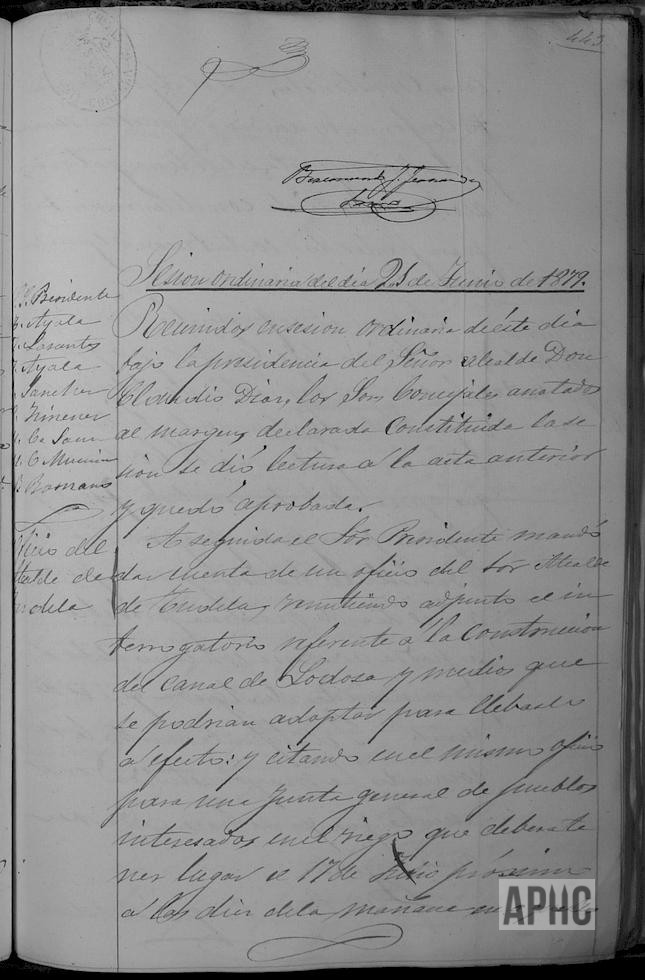 443
Sesion ordinaria del dia 21 de Junio de 1879.
Sr. Presidente
Ayala
Lasanta
Ayala
Sanchez
Ximenez
Romano
Reunidos en sesion ordinaria de éste dia
bajo la presidencia del Señor Alcalde Don
Claudio Diaz, los Sors Concejales anotados
al margen, declarada Constituida la se
sion se dió lectura á la acta anterior
y quedó aprobada.
Oficio del
Alcalde de
Tudela
A seguida el Sor Presidente mandó
dar cuenta de un oficio del Sor Alcalde
de Tudela, remitiendo adjunto el in
terrogatorio referente á la Construccion
del canal de Lodosa y medios que
se podrian adoptar para llebarlo
á efecto: y citando en el mismo oficio
para una Junta general de pueblos
interesados en el riego que debera te
ner lugar el 17 de Julio próximo
á las diez de la mañana en
APHC